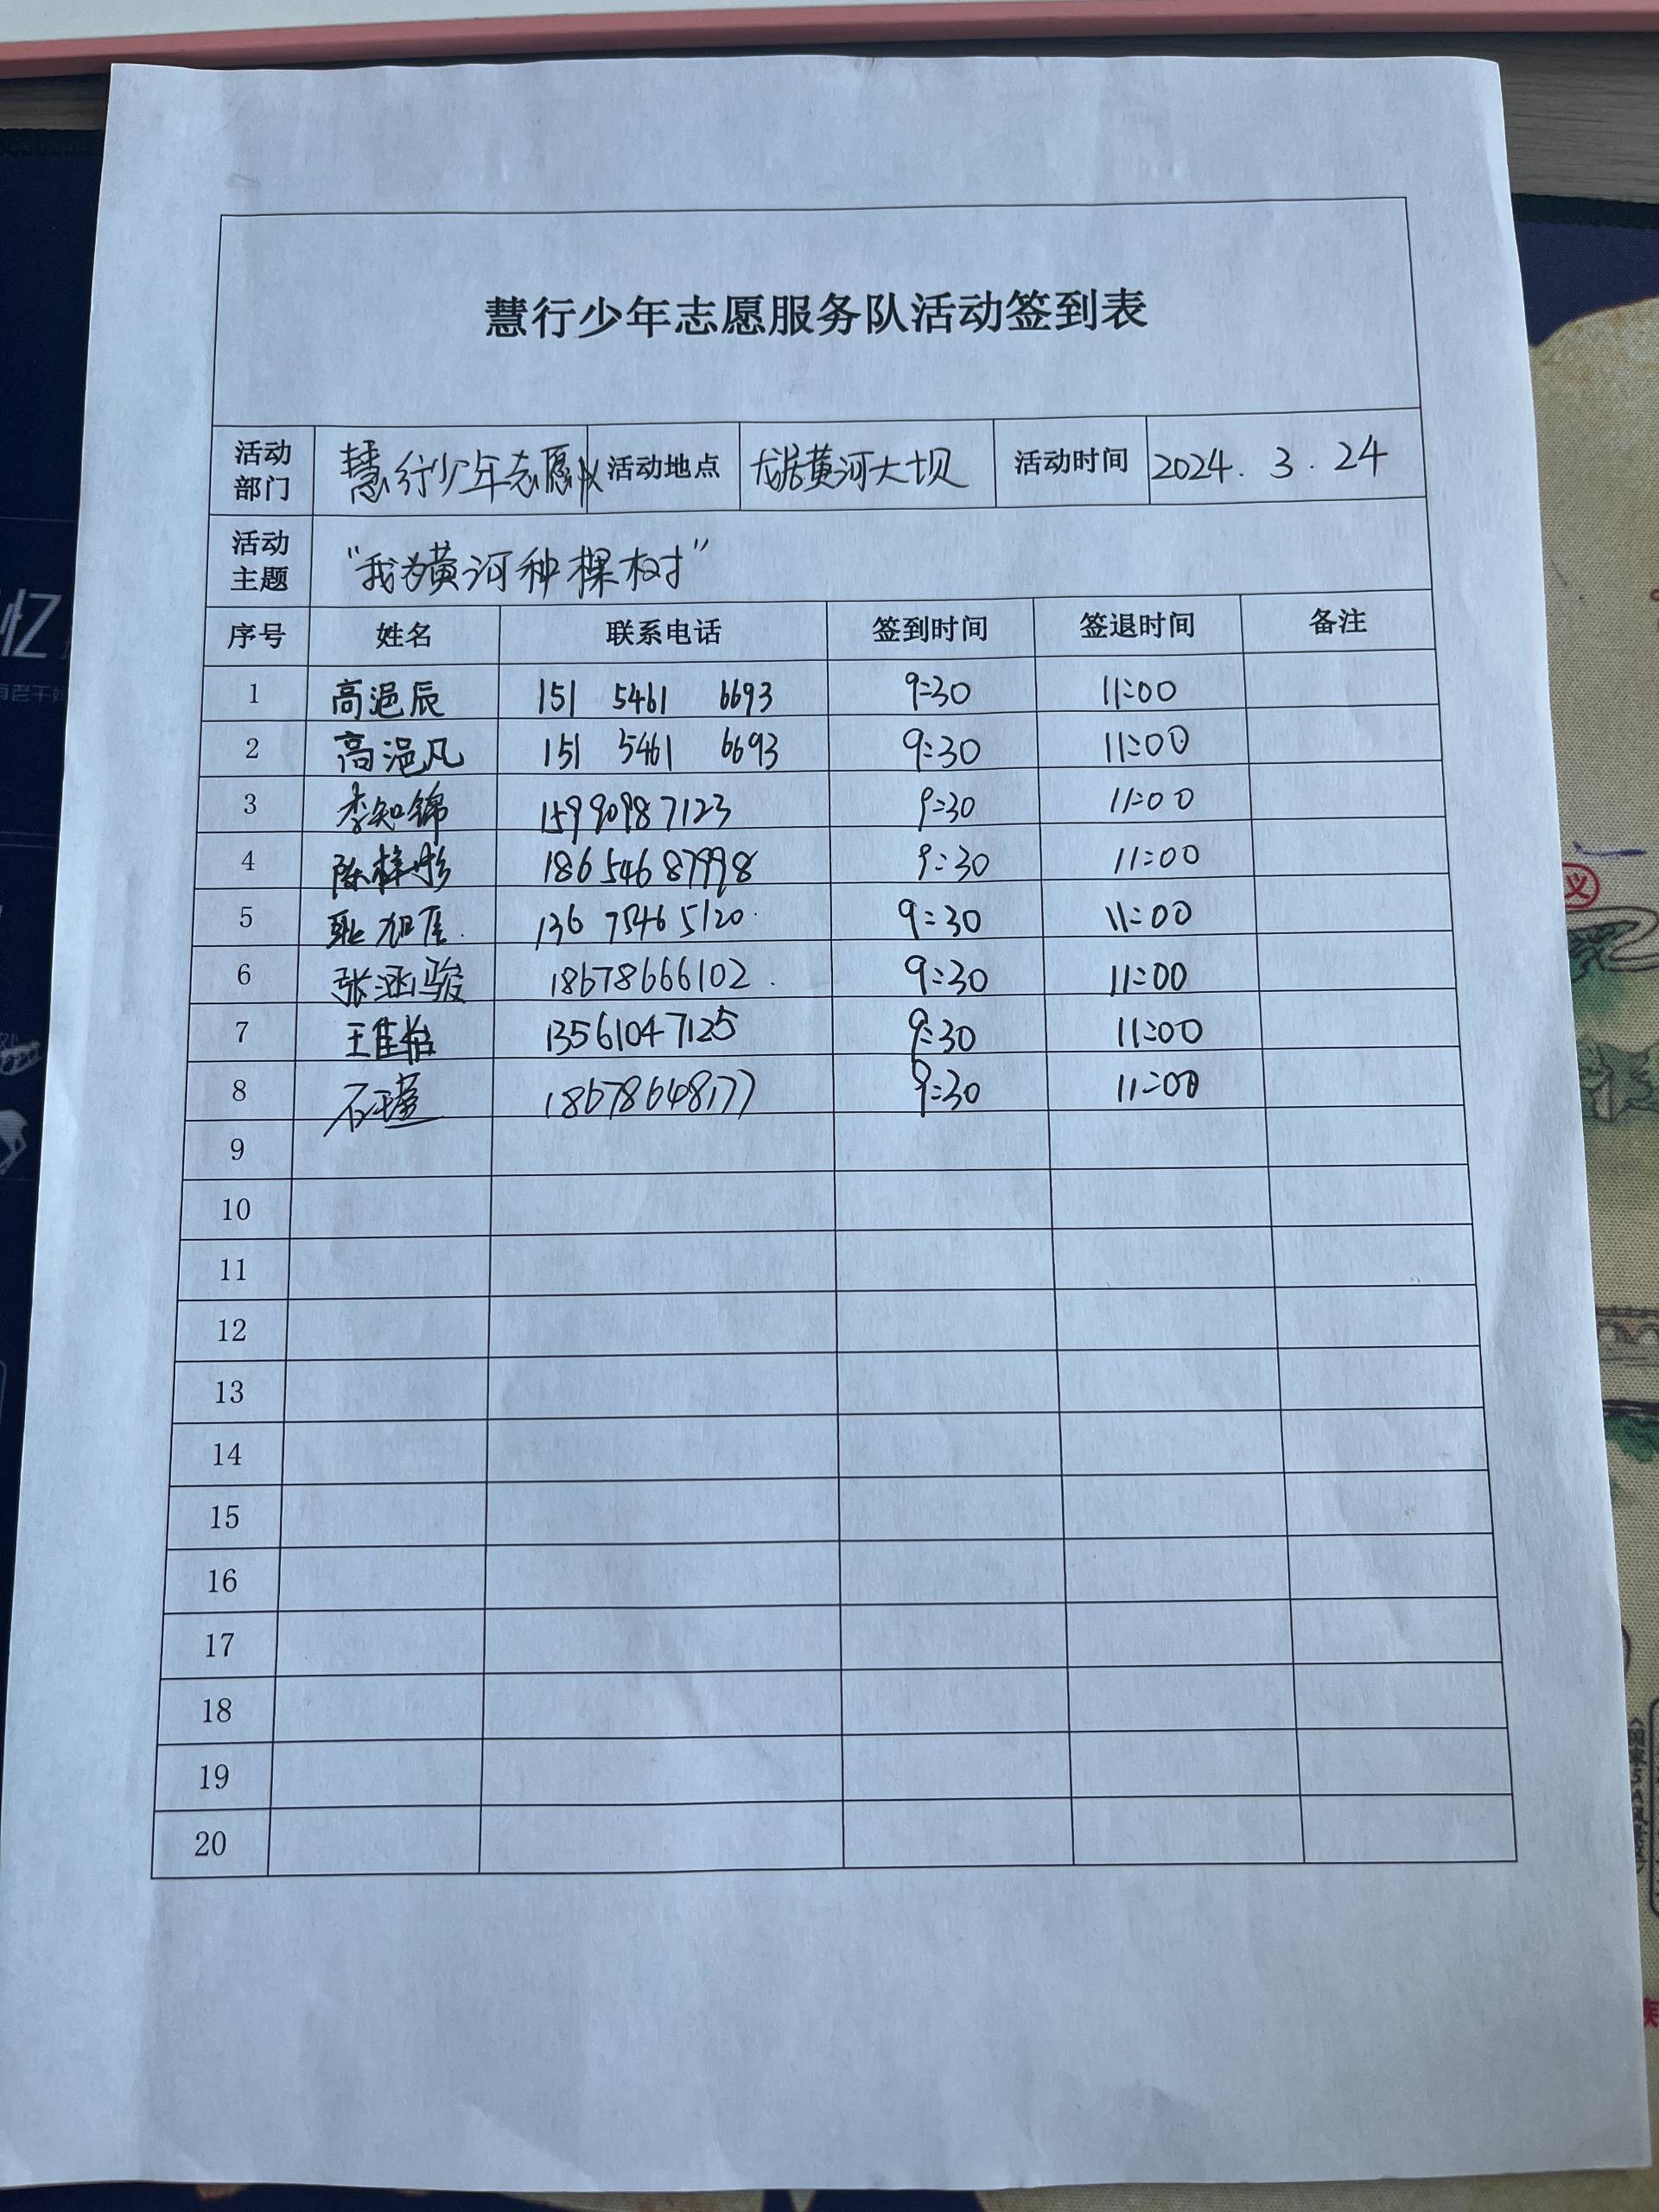 慧行少年志愿服务队活动签到表
活动部门 慧行少年志愿队 活动地点 龙居黄河大坝 活动时间 2024.3.24
活动主题 “我为黄河种棵树”
序号 姓名 联系电话 签到时间 签退时间 备注
1 高浥辰 151 5461 6693 9:30 11:00
2 高浥凡 151 5461 6693 9:30 11:00
3 李知锦 15990987123 9:30 11:00
4 陈梓彤 186 546 87998 9:30 11:00
5 耿旭 136 7546 5120 9:30 11:00
6 张涵骏 18678666102 9:30 11:00
7 王佳怡 13561047125 9:30 11:00
8 石瑾 18678648177 9:30 11:00
9
10
11
12
13
14
15
16
17
18
19
20